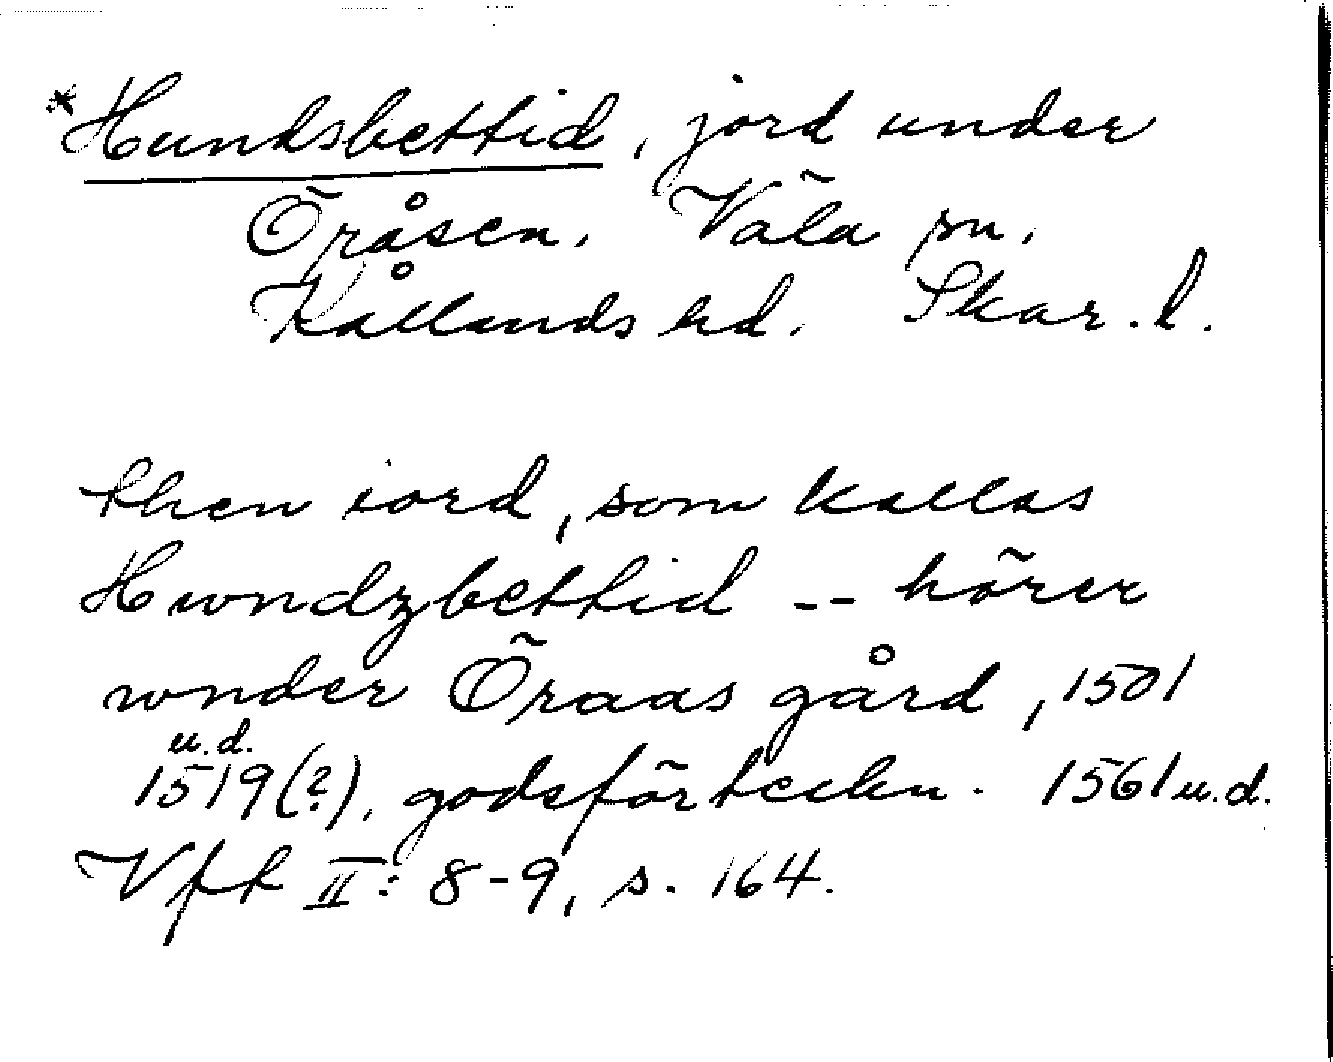 *Hundsbettid, jord under
Öråsen. Väla sn.
Kållands hd. Skar. l.
then iord, som kallas
Hwndzbettid -- hörer
wnder Öraas gård, 1501
u.d.
1519(?), godsförteckn. 1561 u.d.
Vfft II: 8-9, s. 164.